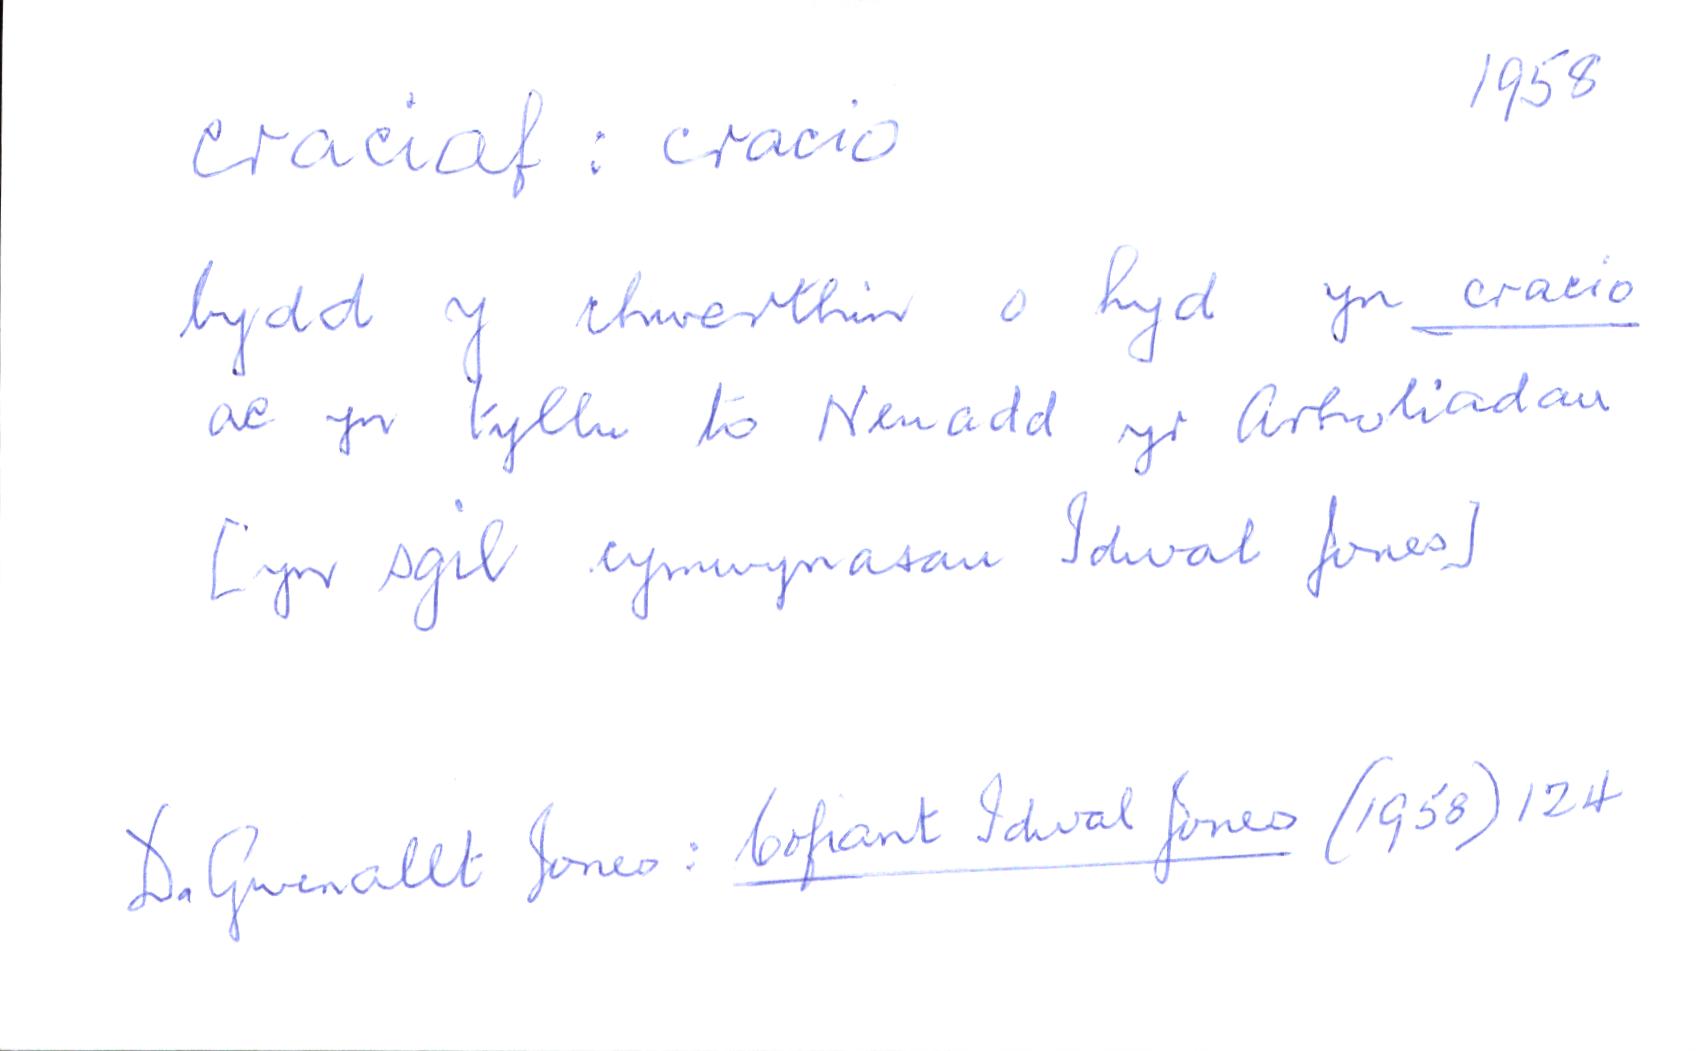 1958
craciaf : cracio
bydd y chwerthin o hyd yn cracio
ac yn tyllu to Neuadd yr Arholiadau
[yn sgil cymwynasau Idwal Jones]
D. Gwenallt Jones : Cofiant Idwal Jones (1958) 124